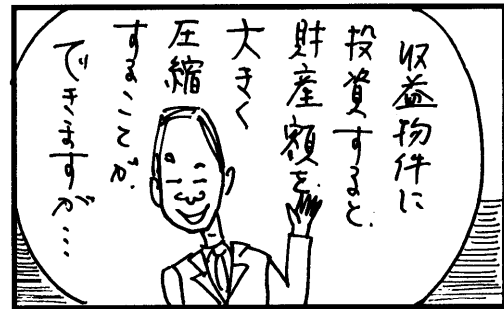 収益物件に
投資すると、
財産額を
大きく
圧縮
することが、
できますが…